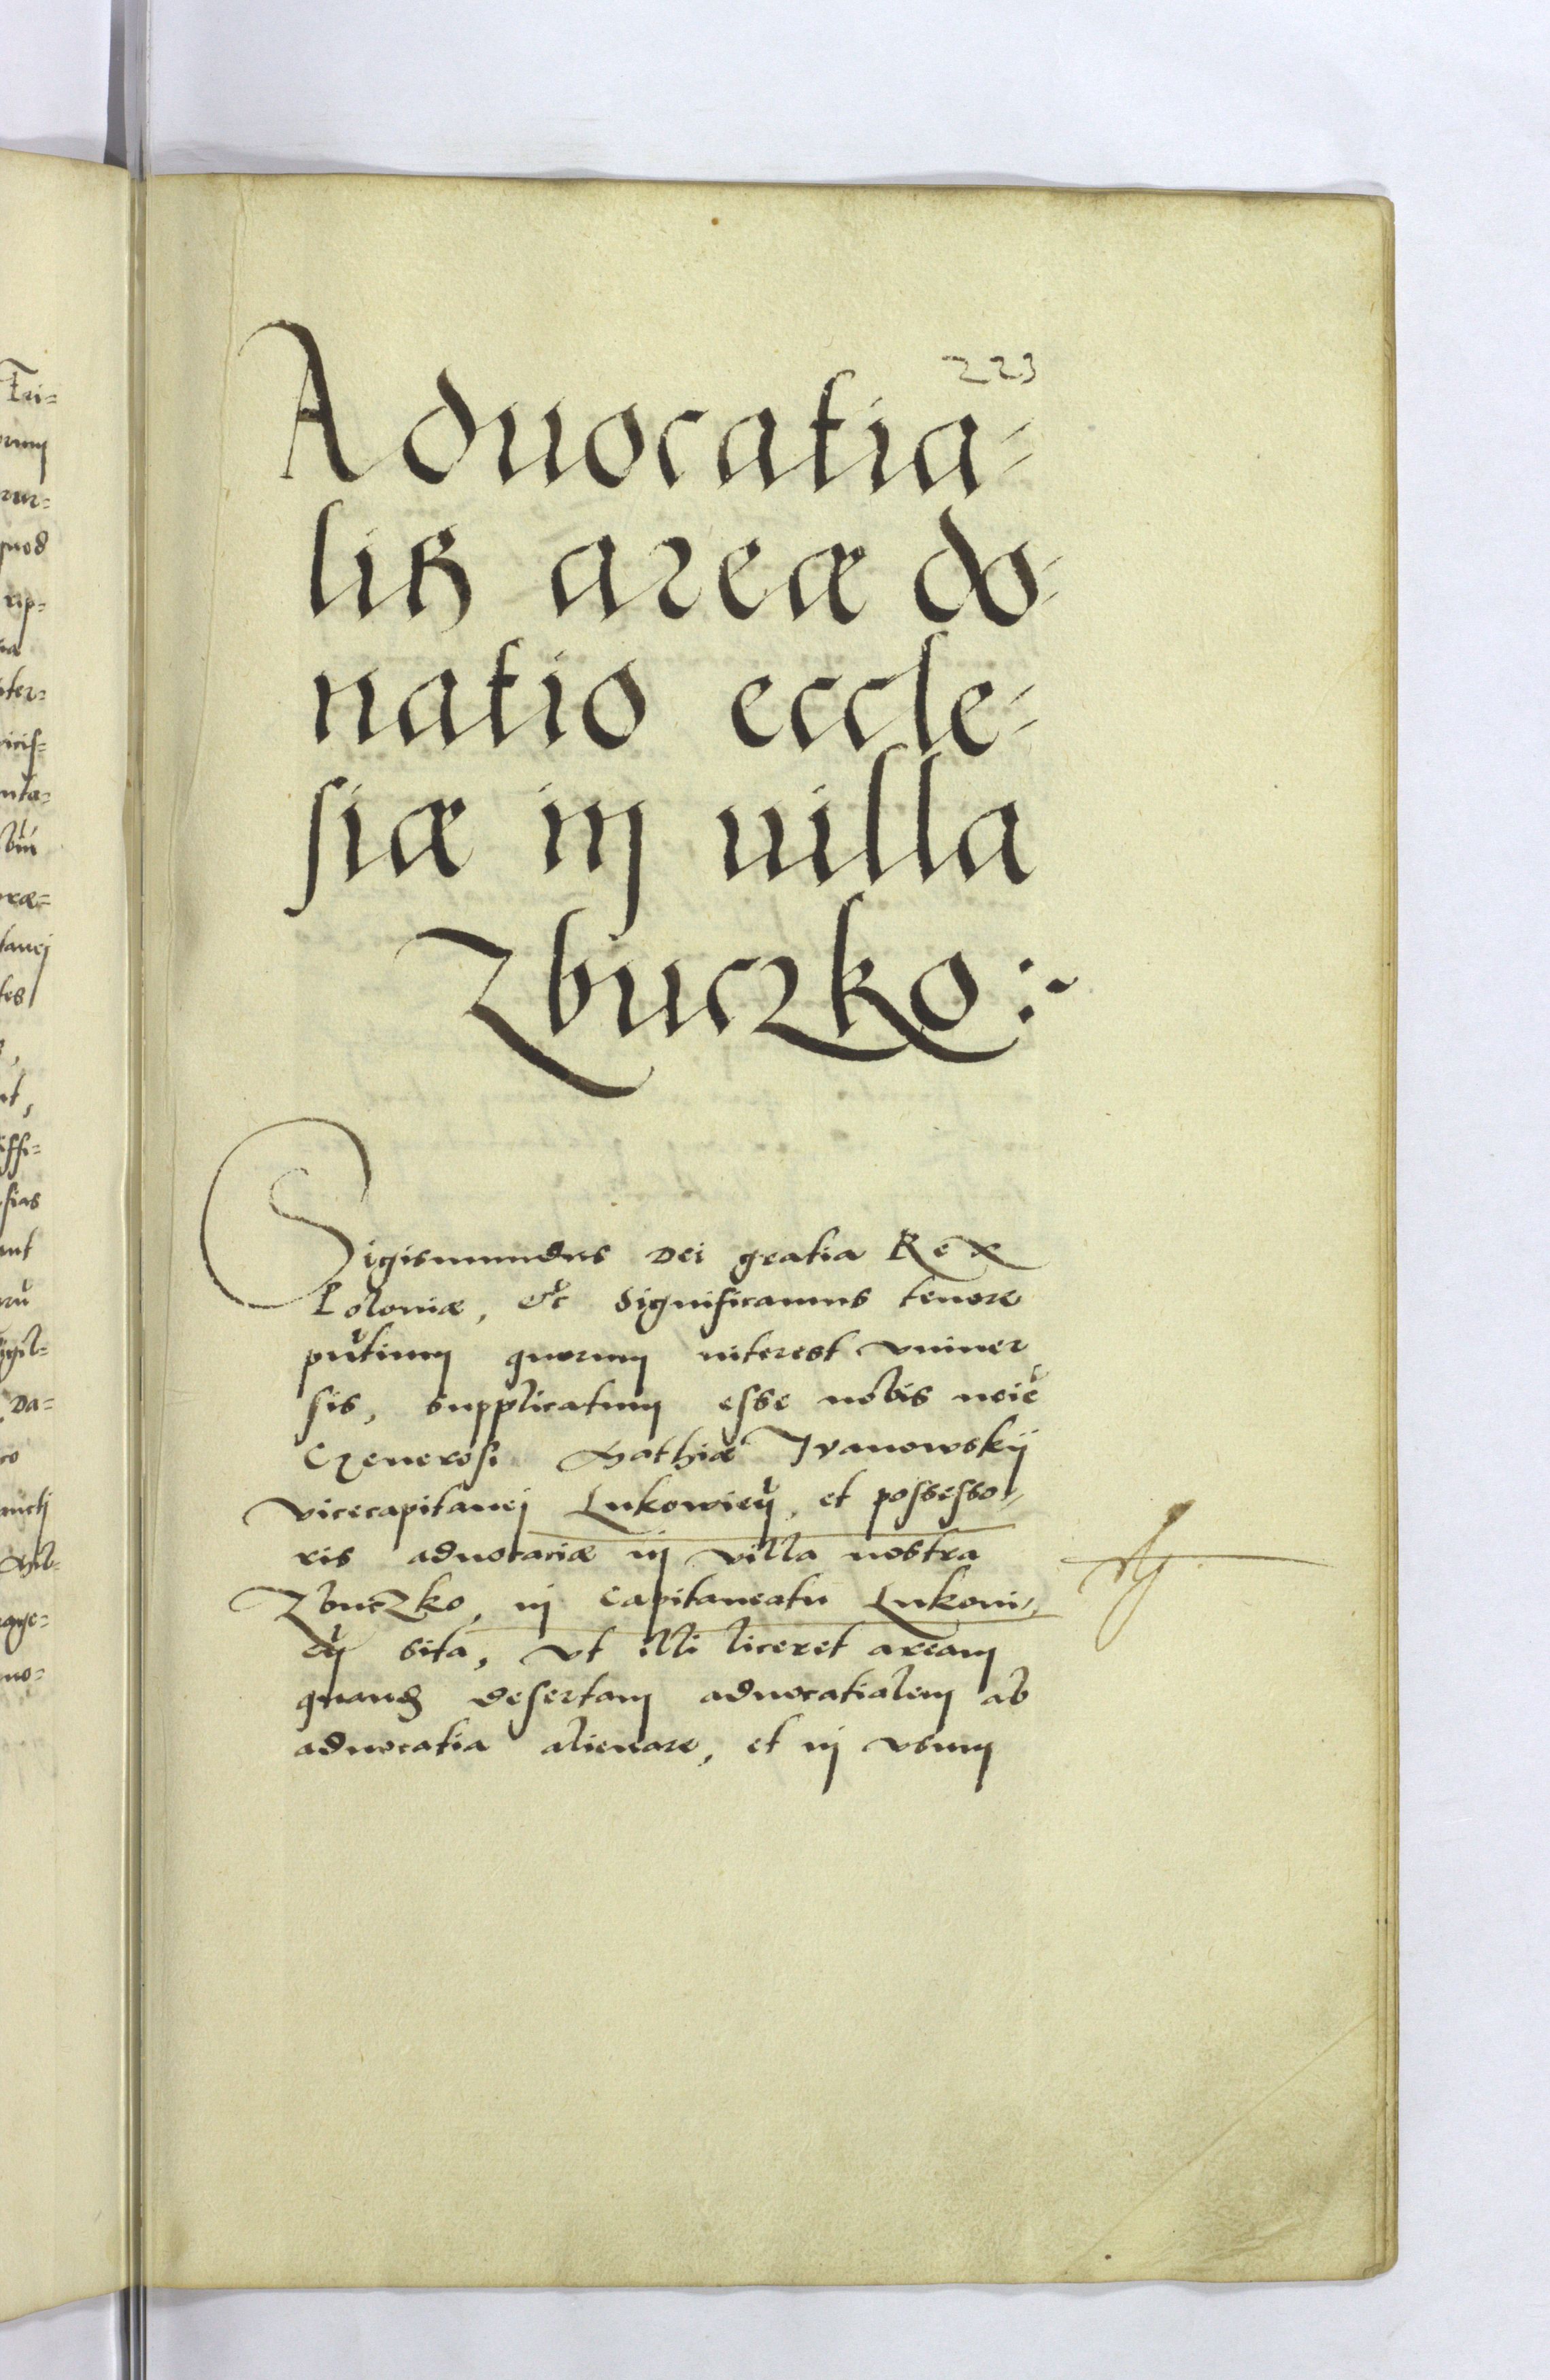 223
Aduocatia-
lis areæ do-
natio eccle-
siæ in uilla
Zbuczko:~
Sigismundus Dei gratia Rex
Poloniæ, etc significamus tenore
pntium quorum interest vniuer
sis, supplicatum esse nobis noie
Generosi Mathiæ Ivanowskij
vicecapitanei Lukowien, et possesso-
ris aduocaciæ in villa nostra
Zbuczko, in capitaneatu Lukoui-
en sita, vt illi liceret aream
quand desertam aduocatialem ab
aduocatia alienare, et in vsum